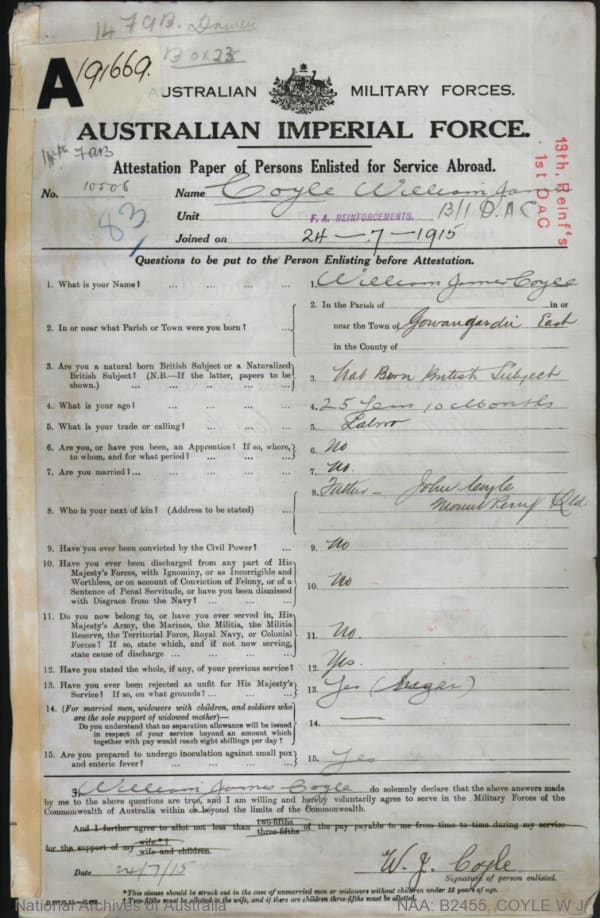 14 FAB. Driver
BOX 23
A 191669.
AUSTRALIAN MILITARY FORCES.
AUSTRALIAN IMPERIAL FORCE.
14th FAB
Attestation Paper of Persons Enlisted for Service Abroad.
13th, Reinf's
1st DAC
No. 10506 Name Coyle William James
83
Unit F. A. REINFORCEMENTS. 13/1 D.A.C
Joined on 24-7-1915
Questions to be put to the Person Enlisting before Attestation.
1. What is your Name? ... ... ... ... 1. William James Coyle
2. In or near what Parish or Town were you born? ... 2. In the Parish of in or
near the Town of Gowangardie East
in the County of
3. Are you a natural born British Subject or a Naturalized
British Subject? (N.B.—If the latter, papers to be
shown.) ... ... ... ... ... 3. Nat Born British Subject
4. What is your age? ... ... ... ... 4. 25 Years 10 Months
5. What is your trade or calling? ... ... ... 5. Labor
6. Are you, or have you been, an Apprentice? If so, where,
to whom, and for what period? ... ... ... 6. No
7. Are you married? ... ... ... ... 7. No.
8. Who is your next of kin? (Address to be stated) ... 8. Father - John Coyle
Mount Perry Qld.
9. Have you ever been convicted by the Civil Power? ... 9. No
10. Have you ever been discharged from any part of His
Majesty's Forces, with Ignominy, or as Incorrigible and
Worthless, or on account of Conviction of Felony, or of a
Sentence of Penal Servitude, or have you been dismissed
with Disgrace from the Navy? ... ... ... 10. No
11. Do you now belong to, or have you ever served in, His
Majesty's Army, the Marines, the Militia, the Militia
Reserve, the Territorial Force, Royal Navy, or Colonial
Forces? If so, state which, and if not now serving,
state cause of discharge ... ... ... ... 11. No.
12. Have you stated the whole, if any, of your previous service? 12. Yes.
13. Have you ever been rejected as unfit for His Majesty's
Service? If so, on what grounds? ... ... ... 13. Yes (Sugar)
14. (For married men, widowers with children, and soldiers who
are the sole support of widowed mother)—
Do you understand that no separation allowance will be issued
in respect of your service beyond an amount which
together with pay would reach eight shillings per day? 14. —
15. Are you prepared to undergo inoculation against small pox
and enteric fever? ... ... ... ... 15. Yes
I, William James Coyle do solemnly declare that the above answers made
by me to the above questions are true, and I am willing and hereby voluntarily agree to serve in the Military Forces of the
Commonwealth of Australia within or beyond the limits of the Commonwealth.
And I further agree to allot not less than two-fifths three-fifths of the pay payable to me from time to time during my service
for the support of my wife*† wife and children.
Date 24/7/15 W. J. Coyle
Signature of person enlisted.
*This clause should be struck out in the case of unmarried men or widowers without children under 18 years of age.
† Two-fifths must be allotted to the wife, and if there are children three-fifths must be allotted.
National Archives of Australia NAA: B2455, COYLE W J